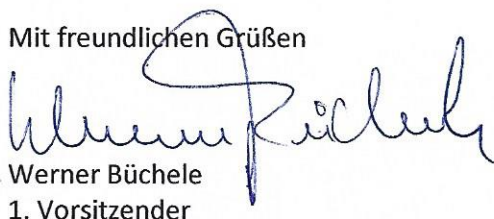 Mit freundlichen Grüßen
Werner Büchele
Werner Büchele
1. Vorsitzender